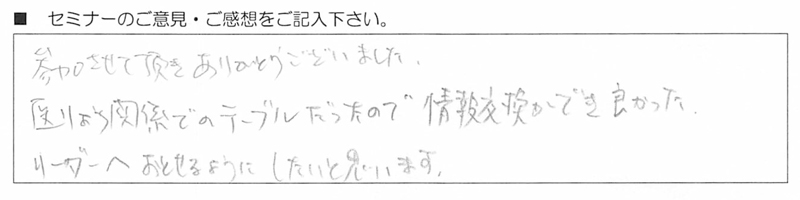 ■ セミナーのご意見・ご感想をご記入下さい。
参加させて頂きありがとうございました.
医りょう関係でのテーブルだったので情報交換ができ良かった.
リーダーへおとせるようにしたいと思います.